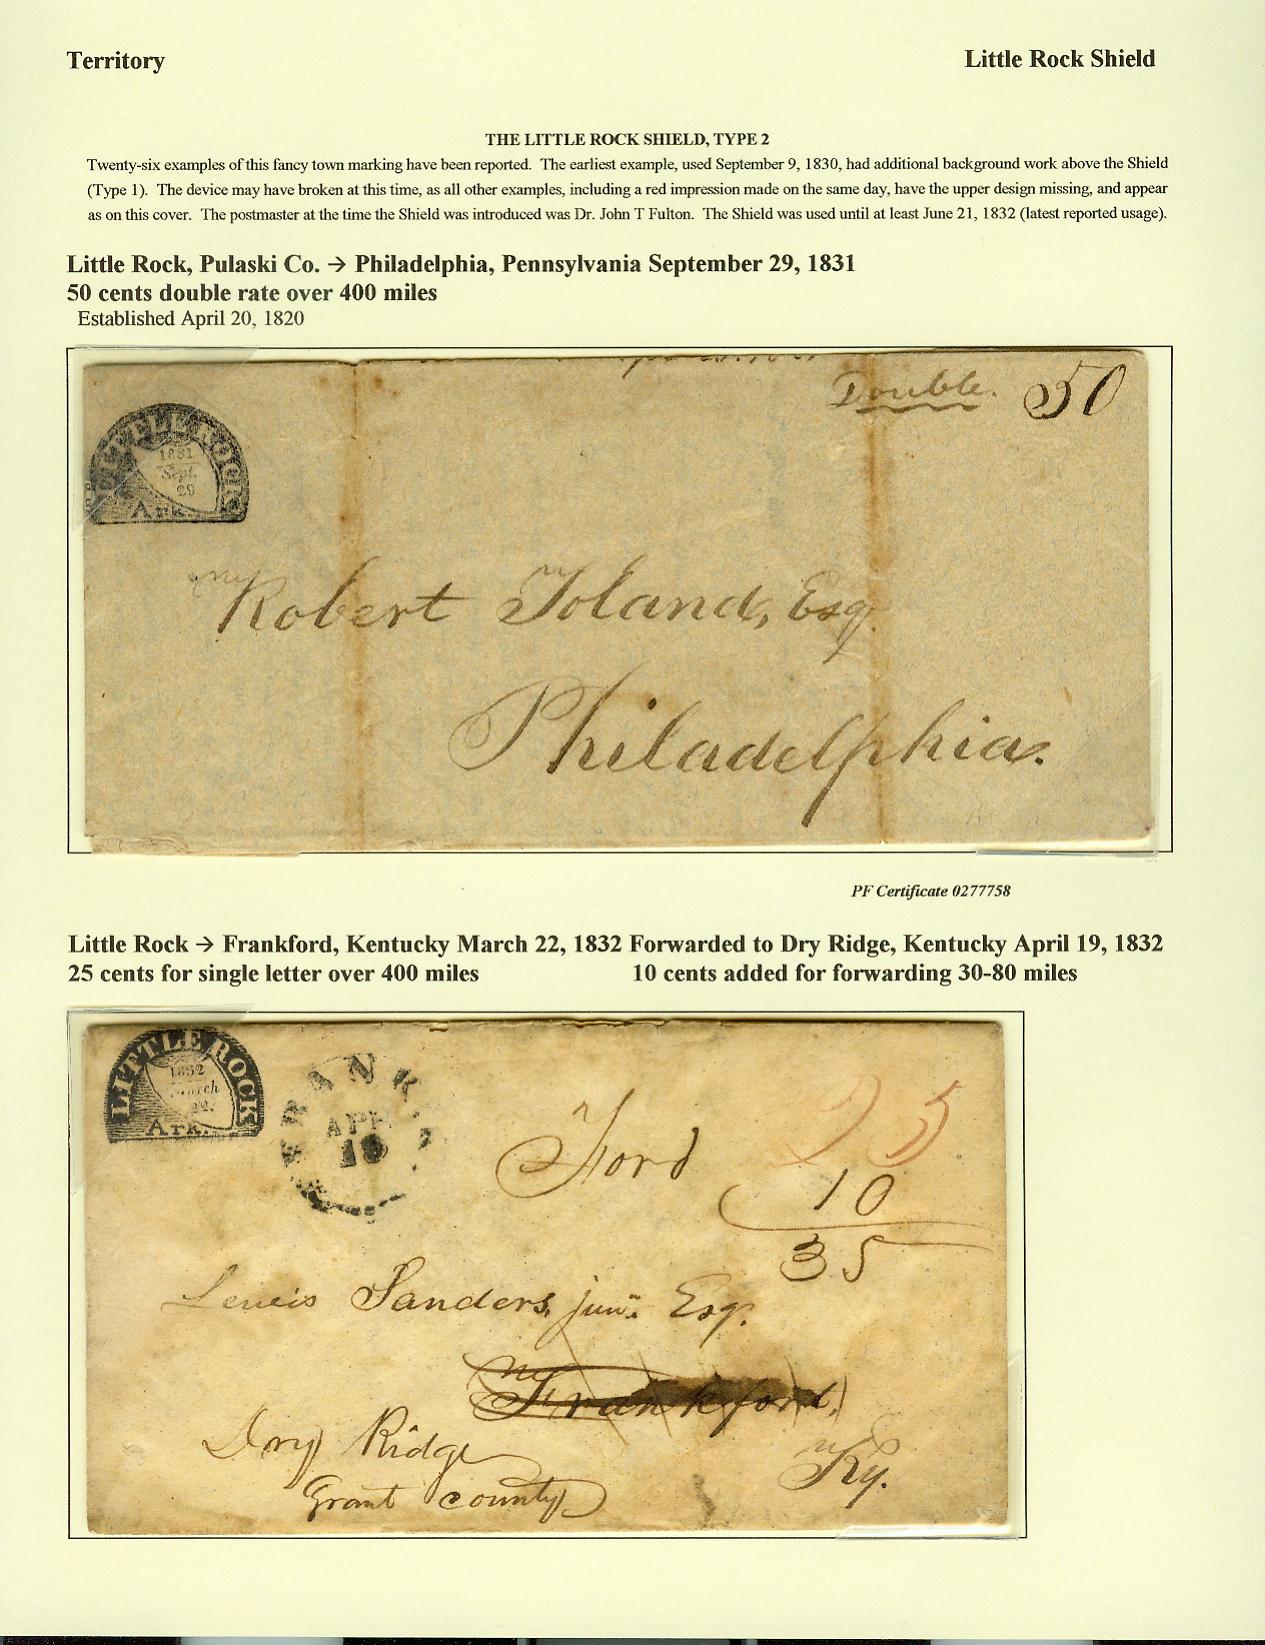 Territory
Little Rock Shield
THE LITTLE ROCK SHIELD, TYPE 2
Twenty-six examples of this fancy town marking have been reported. The earliest example, used September 9, 1830, had additional background work above the Shield
(Type 1). The device may have broken at this time, as all other examples, including a red impression made on the same day, have the upper design missing, and appear
as on this cover. The postmaster at the time the Shield was introduced was Dr. John T Fulton. The Shield was used until at least June 21, 1832 (latest reported usage).
Little Rock, Pulaski Co. → Philadelphia, Pennsylvania September 29, 1831
50 cents double rate over 400 miles
Established April 20, 1820
Double. 50
LITTLE ROCK
1831
Sept.
29
Ark.
Robert Toland, Esq.
Philadelphia.
PF Certificate 0277758
Little Rock → Frankford, Kentucky March 22, 1832 Forwarded to Dry Ridge, Kentucky April 19, 1832
25 cents for single letter over 400 miles
10 cents added for forwarding 30-80 miles
LITTLE ROCK
1832
March
22.
Ark.
FRANK
APR
19
Ford
25
10
35
Lewis Sanders, junr. Esq.
Frankford,
Dry Ridge
Ky.
Grant county